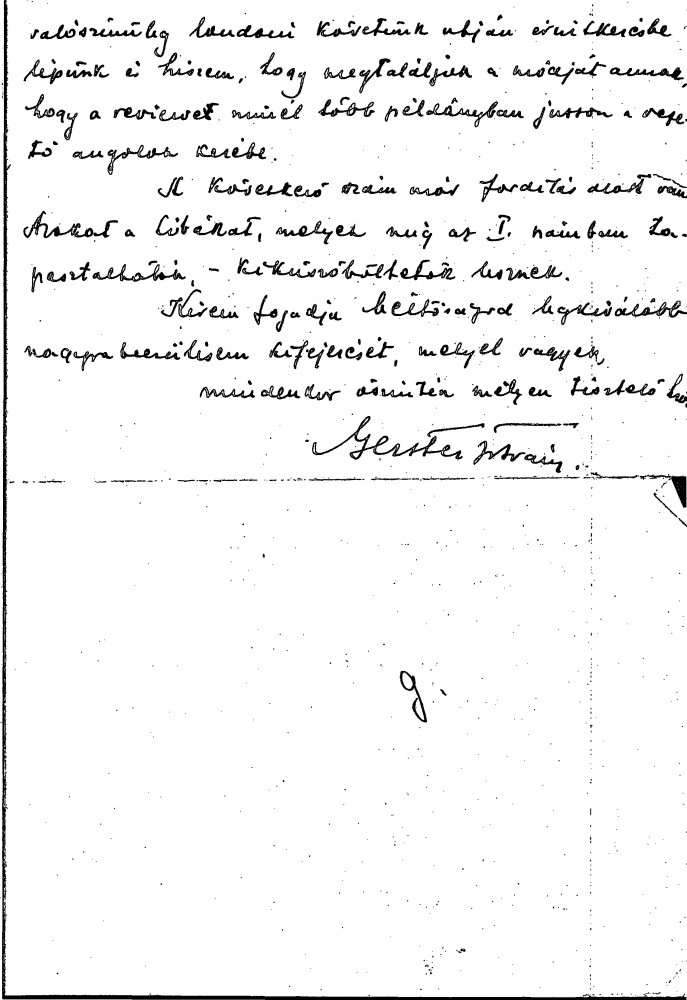 valószinüleg londoni követünk utján érintkezésbe
lépünk és hiszem, hogy megtaláljuk a módját annak,
hogy a reviewet minél több példányban jusson a veze-
tő angolok kezébe.
A következő szám már fordítás alatt van
Azokat a hibákat, melyek még az I. számban ta-
pasztalhatók, – kiküszöbölhetők lesznek.
Kérem fogadja Méltóságod legkiválóbb
nagyrabecsülésem kifejezését, melyel vagyok,
mindenkor őszintén mélyen tisztelő
Gerster István.
g.